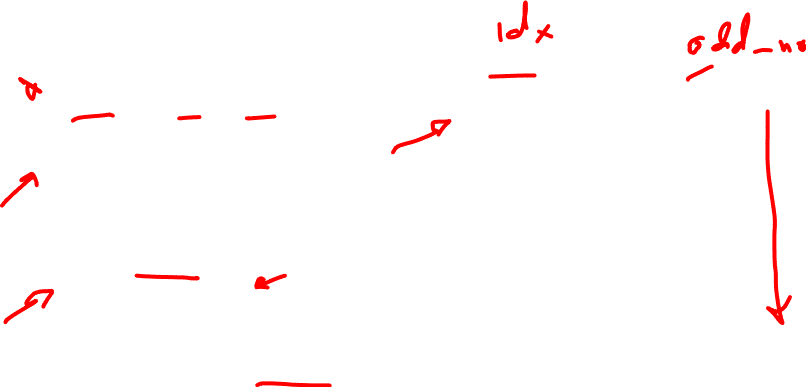 idx
odd_no